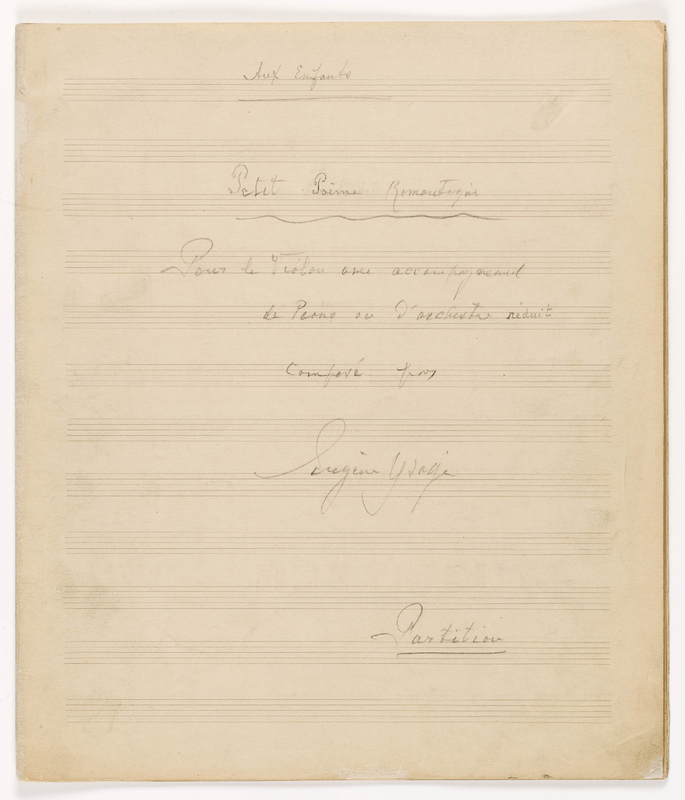 Aux Enfants
Petit Poème Romantique
Pour le Violon avec accompagnement
de Piano ou d'orchestre réduit
Composé par
Eugène Ysaÿe
Partition